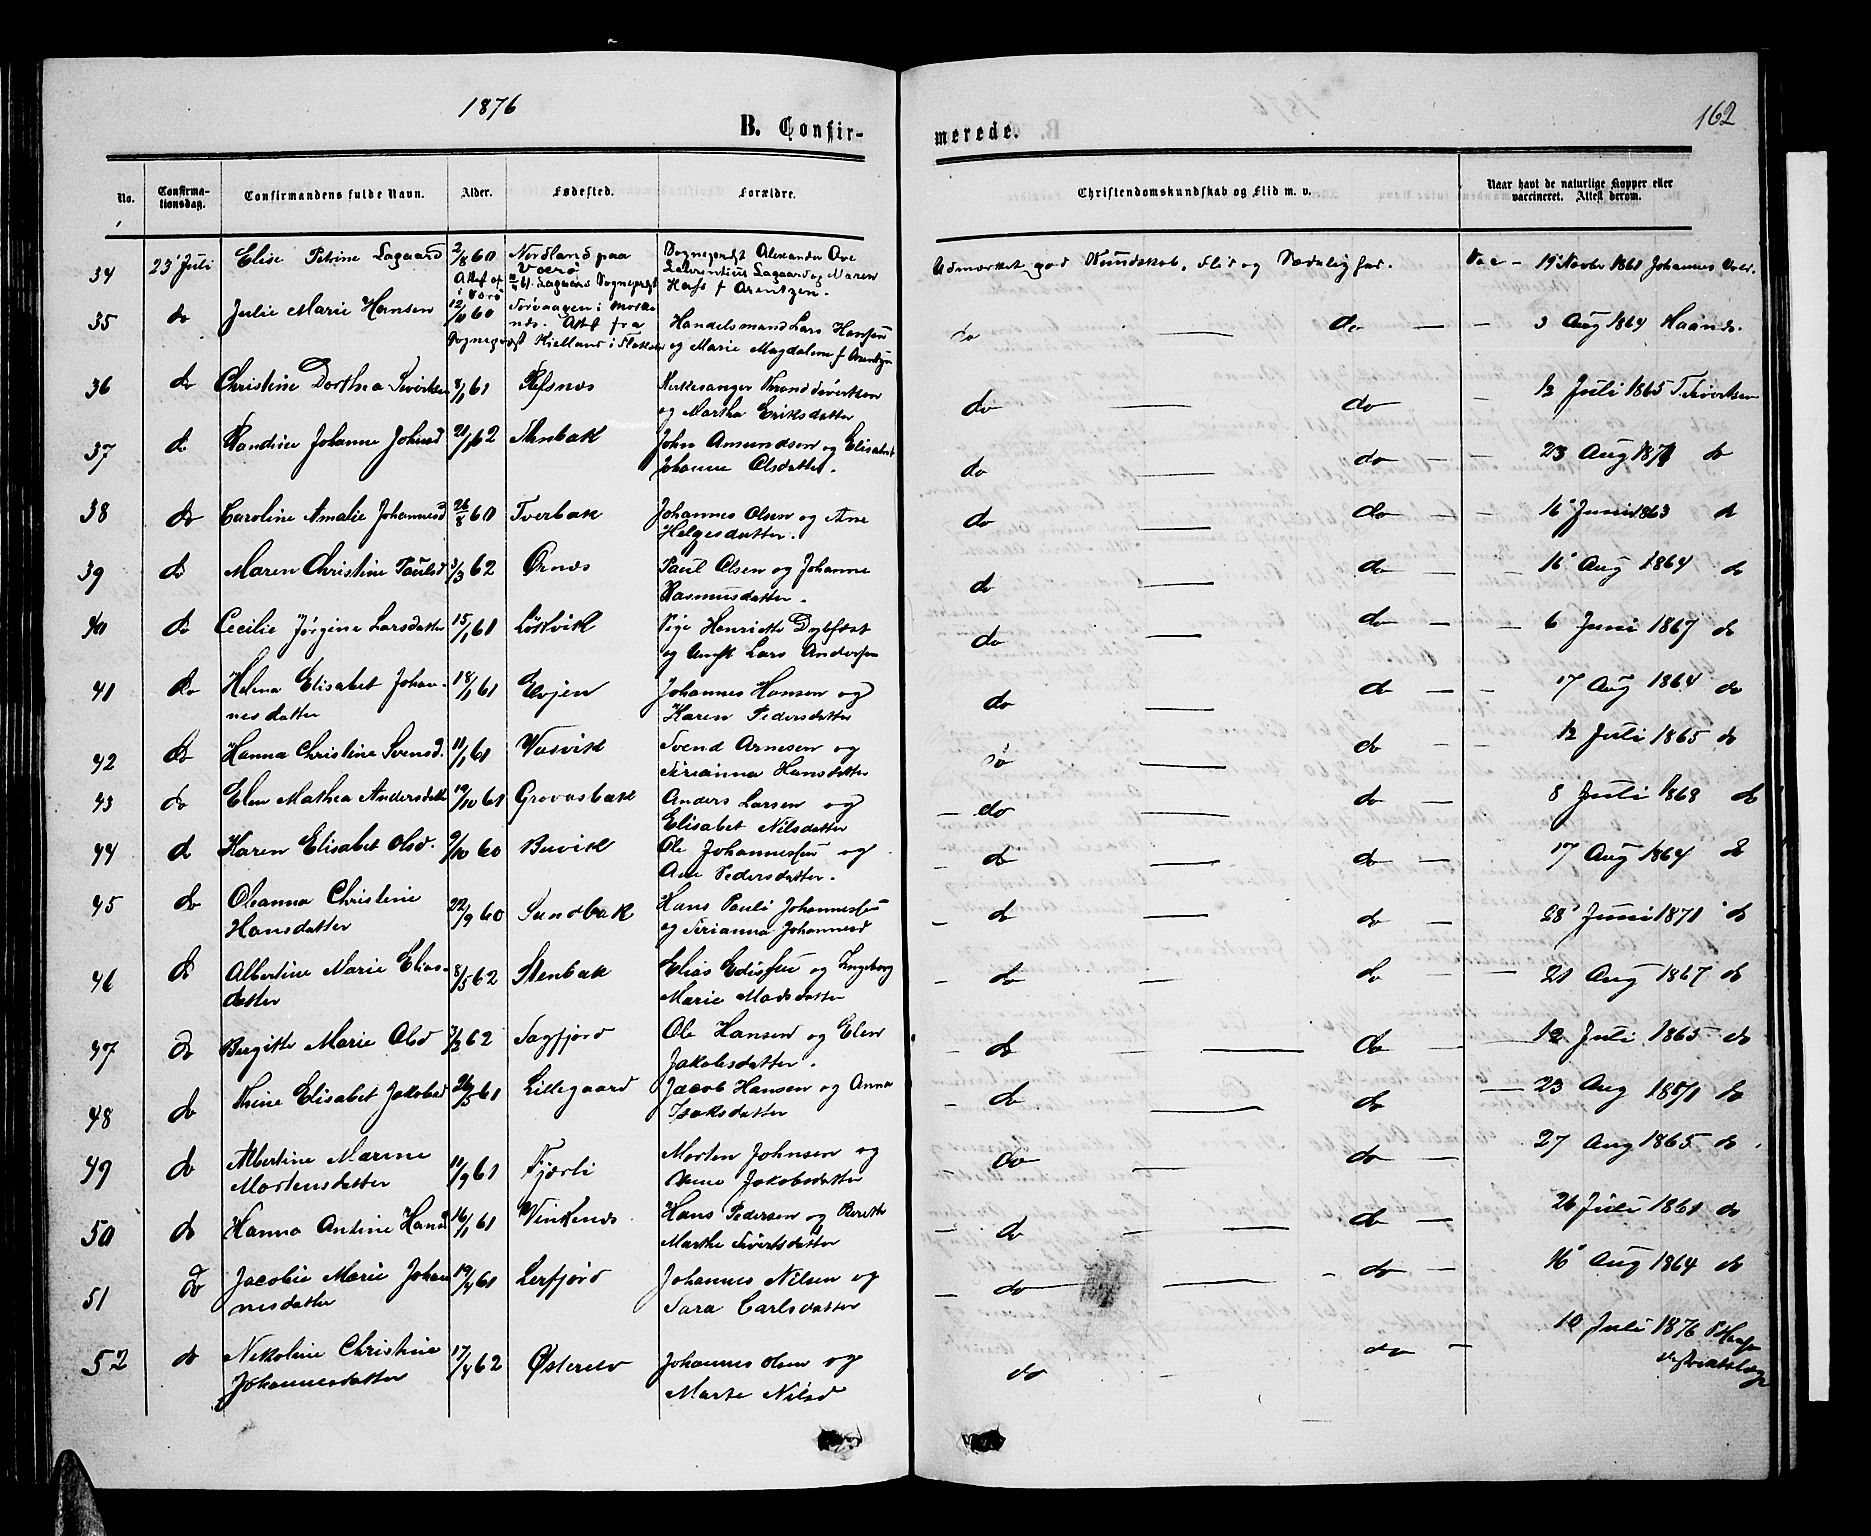 1876
B. Confirmerede.
162
No.
Confirmationsdag.
Confirmandens fulde Navn.
Alder.
Fødested.
Forældre.
Christendomskundskab og Flid m. v.
Naar havt de naturlige Kopper eller vaccineret. Attest derom.
34 23' Juli Elise Petrine Lagaard 2/8 60 Nordland paa Værø Sogneprest Alexander Ove Laurentius Lagaard og Maren f Arentzen. Udmærket god Kundskab, Flid og Sædelighed. Vac – 19 Novbr 1861 Johannes
35 do Julie Marie Hansen 12/10 60 Sørvaagen i Moskenæs. Attst fra Sogneprest Kielland i Handelsmand Lars Hansen og Marie Magdalene f Arentzen do — do — 3 Aug 1864
36 do Christine Dorthea Sivertsen 8/1 61 Refsnæs Kirkesanger Sivertsen og Martha Eriksdatter do — do 12 Juli 1865 T. Sivertsen
37 do Randine Johanne Johnsd 21/1 62 Stenbak John Amundsen og Elisabet Johanne Olsdatter. do — do – 23 Aug 1871 do
38 do Caroline Amalie Johannesd 26/8 60 Tverbak Johannes Olsen og Ane Helgesdatter. do — do — 16 Juni 1863 do
39 do Maren Christine Paulsd 3/3 62 Ørnes Paul Olsen og Johanne Rasmusdatter. do — do — 16 Aug 1864 do
40 do Cecilie Jørgine Larsdatter 15/1 61 Løkvik Pige Henriette og Lars Andersen do — do — 6 Juni 1867 do
41 do Helena Elisabet Johannesdatter 18/1 61 Evjen Johannes Hansen og Karen Pedersdatter do — do — 17 Aug 1864 do
42 do Hanna Christine Svensd. 11/1 61 Vasvik Svend Arnesen og Sirianna Hansdatter do — do — 12 Juli 1865 do
43 do Elen Mathea Andersdatter 19/10 61 Grovasbak Anders Larsen og Elisabet Nilsdatter do — do — 8 Juli 1868 do
44 do Karen Elisabet Olsd. 9/10 60 Buvik Ole Johannesen og Ane Pedersdatter. do — do — 17 Aug 1864 do
45 do Oleanna Christine Hansdatter 22/9 60 Sundbak Hans Pauli Johannesen og Sirianna Johannesd – do — do — 28' Juni 1871 do
46 do Albertine Marie Eliasdatter 8/5 62 Stenbak Elias and Ingeborg Marie Madsdatter – do — do — 21 Aug 1867 do
47 do Birgitte Marie Olsd 7/2 62 Sagfjord Ole Hansen og Elen Jakobsdatter. – do — do — 12 Juli 1865 do
48 do Thine Elisabet Jakobsd 26/5 61 Lillegaard Jacob Hansen og Anna Isaksdatter – do — do — 23 Aug 1871 do
49 do Albertine Marine Mortensdatter 11/9 61 Fjærli Morten Johnsen og Jakobsdatter do — do — 27 Aug 1865 do
50 do Hanna Antine Hansd 16/1 61 Vinkenes Hans Pedersen og Berette Marthe Sivertsdatter – do — do — 26 Juli 1861 do
51 do Jacobie Marie Johannesdatter 19/4 61 Lerfjord Johannes Nilsen og Sara Carlsdatter – do — do — 16' Aug 1864 do
52 do Nikoline Christine Johannesdatter 17/4 62 Østerelv Johannes Olsen og Marte Nilsd do – do – 10 Juli 1876